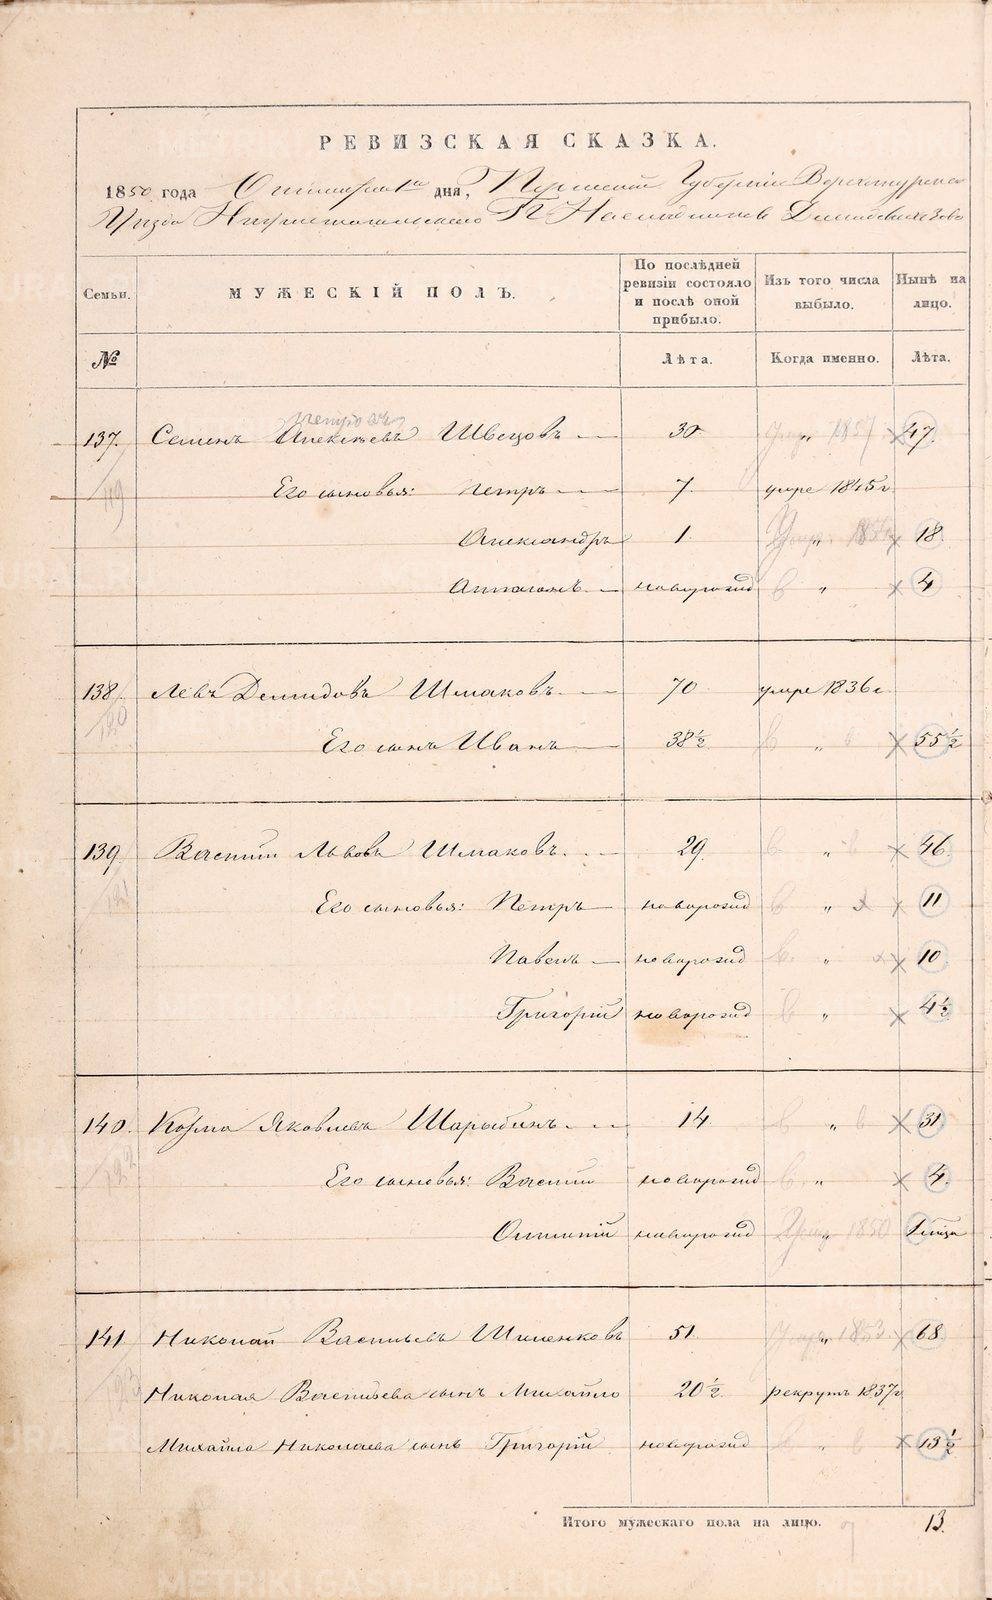 РЕВИЗСКАЯ СКАЗКА.
1850 года Октября 1го дня, Пермской Губернiи Верхотурскаго
Уезда Нижнетагильскаго Гг. Наследниковъ Демидовыхъ Заво
Семьи. МУЖЕСКІЙ ПОЛЪ. По послѣдней ревизіи состояло и послѣ оной прибыло. Изъ того числа выбыло. Нынѣ на лицо.
№ Лѣта. Когда именно. Лѣта.
Петровъ
137. Семенъ Алексѣевъ Швецовъ 30 1857 47.
119 Его сыновья: Петръ 7. умре 1845 г
Александръ 1. „ 18
Антонъ новорожд „ 4
138. Левъ Демидовъ Шмаковъ 70 умре 1836 г
120 Его сынъ Иванъ 38½ „ 55½
139. Василiй Львовъ Шмаковъ 29. „ 46
121 Его сыновья: Петръ новорожд „ 11
Павелъ новорожд „ 10
Григорiй новорожд „ 4½
140. Козма Яковлевъ Шарыбинъ 14 „ 31
122 Его сыновья: Василiй новорожд „ 4.
новорожд 1850
141. Николай Васильевъ Шиленковъ 51. 1853 68.
123 Николая Васильева сынъ Михайло 20½ рекрутъ 1837 г
Михайла Николаева сынъ Григорiй новорожд „ 13½
Итого мужескаго пола на лицо. 13.
METRIKI.GASO-URAL.RU